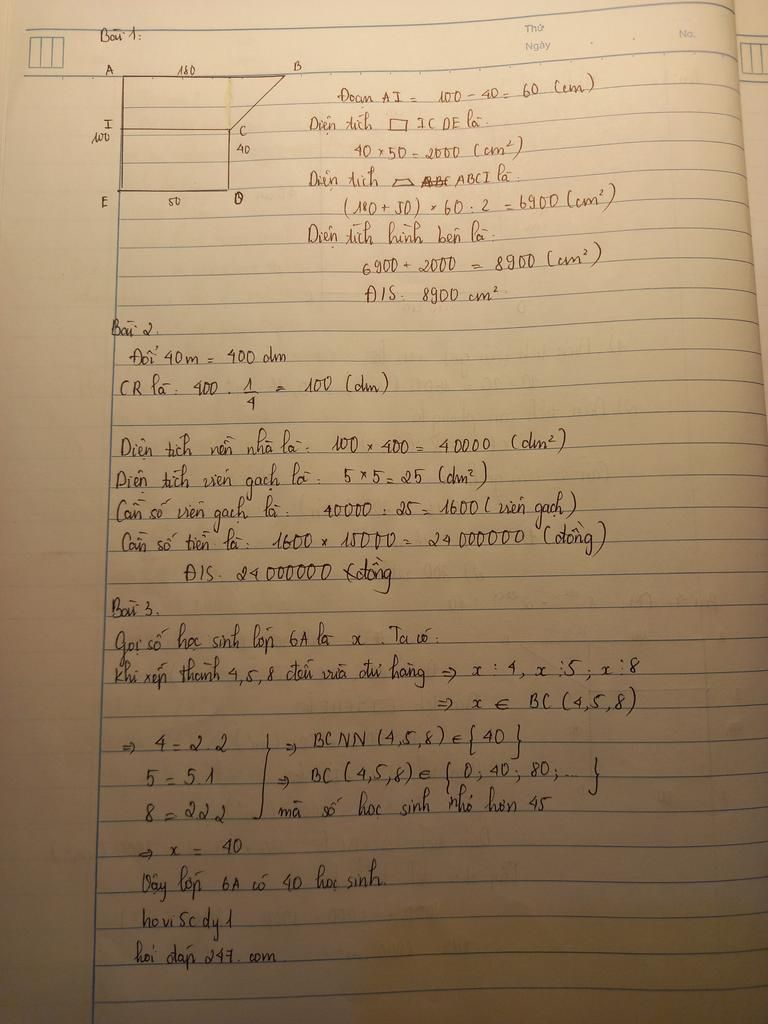 Thứ
Ngày
No.
Bài 1:
A 180 B
I
100
C
40
E 50 D
Đoạn AI = 100 - 40 = 60 (cm)
Diện tích ▭ ICDE là:
40 × 50 = 2000 (cm²)
Diện tích ABCI là:
(180 + 50) × 60 : 2 = 6900 (cm²)
Diện tích hình bên là:
6900 + 2000 = 8900 (cm²)
Đ/S: 8900 cm²
Bài 2.
Đổi 40m = 400 dm
CR là: 400 . 1/4 = 100 (dm)
Diện tích nền nhà là: 100 × 400 = 40000 (dm²)
Diện tích viên gạch là: 5 × 5 = 25 (dm²)
Cần số viên gạch là: 40000 : 25 = 1600 (viên gạch)
Cần số tiền là: 1600 × 15000 = 24000000 (đồng)
Đ/S: 24000000 đồng
Bài 3.
Gọi số học sinh lớp 6A là x. Ta có:
Khi xếp thành 4, 5, 8 đều vừa đủ hàng ⇒ x ⋮ 4, x ⋮ 5; x ⋮ 8
⇒ x ∈ BC (4,5,8)
⇒ 4 = 2.2 } ⇒ BCNN (4,5,8) ∈ { 40 }
5 = 5.1 ⇒ BC (4,5,8) ∈ { 0; 40; 80; ... }
8 = 2.2.2 mà số học sinh nhỏ hơn 45
⇒ x = 40
Vậy lớp 6A có 40 học sinh.
hoviScdy1
hoi dap 247. com